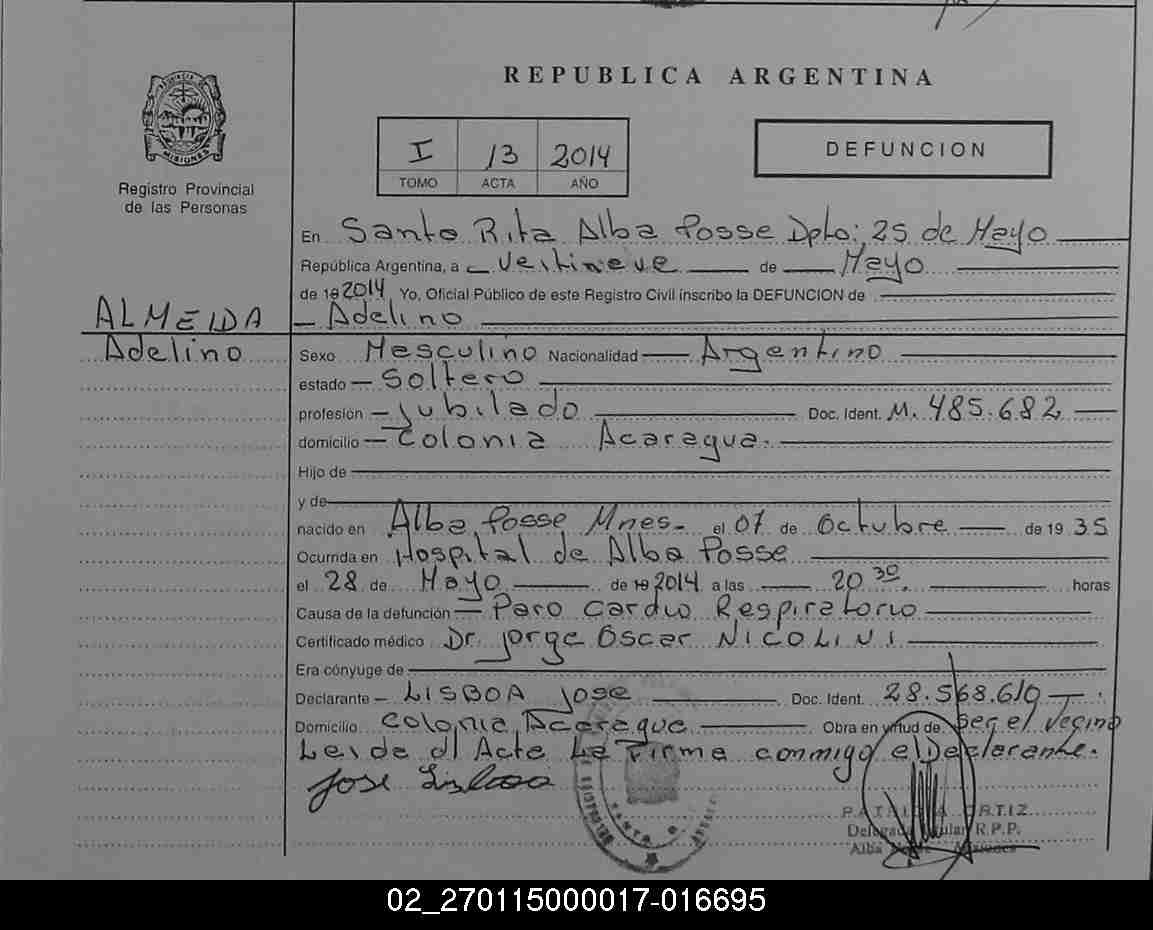 REPUBLICA ARGENTINA
PROVINCIA DE MISIONES
Registro Provincial
de las Personas
I 13 2014
TOMO ACTA AÑO
DEFUNCION
En Santa Rita Alba Posse Dpto; 25 de Mayo
República Argentina, a Veitinueve de Mayo
de 2014, Yo, Oficial Público de este Registro Civil inscribo la DEFUNCION de
ALMEIDA Adelino
Adelino Sexo Masculino Nacionalidad Argentino
estado Soltero
profesión Jubilado Doc. Ident. M. 485.682
domicilio Colonia Acaragua.
Hijo de
y de
nacido en Alba Posse Mnes- el 07 de Octubre de 1935
Ocurrida en Hospital de Alba Posse
el 28 de Mayo de 2014 a las 20 30 horas
Causa de la defunción Paro Cardio Respiratorio
Certificado médico Dr. Jorge Oscar NICOLINI
Era cónyuge de
Declarante LISBOA Jose Doc. Ident. 28.568.610
Domicilio Colonia Acaragua Obra en virtud de Ser el Vecino
Leida el Acta La Firma conmigo el Declarante.
Jose Lisboa
ORTIZ
Delegada Titular R.P.P.
Alba Posse Misiones
02_270115000017-016695